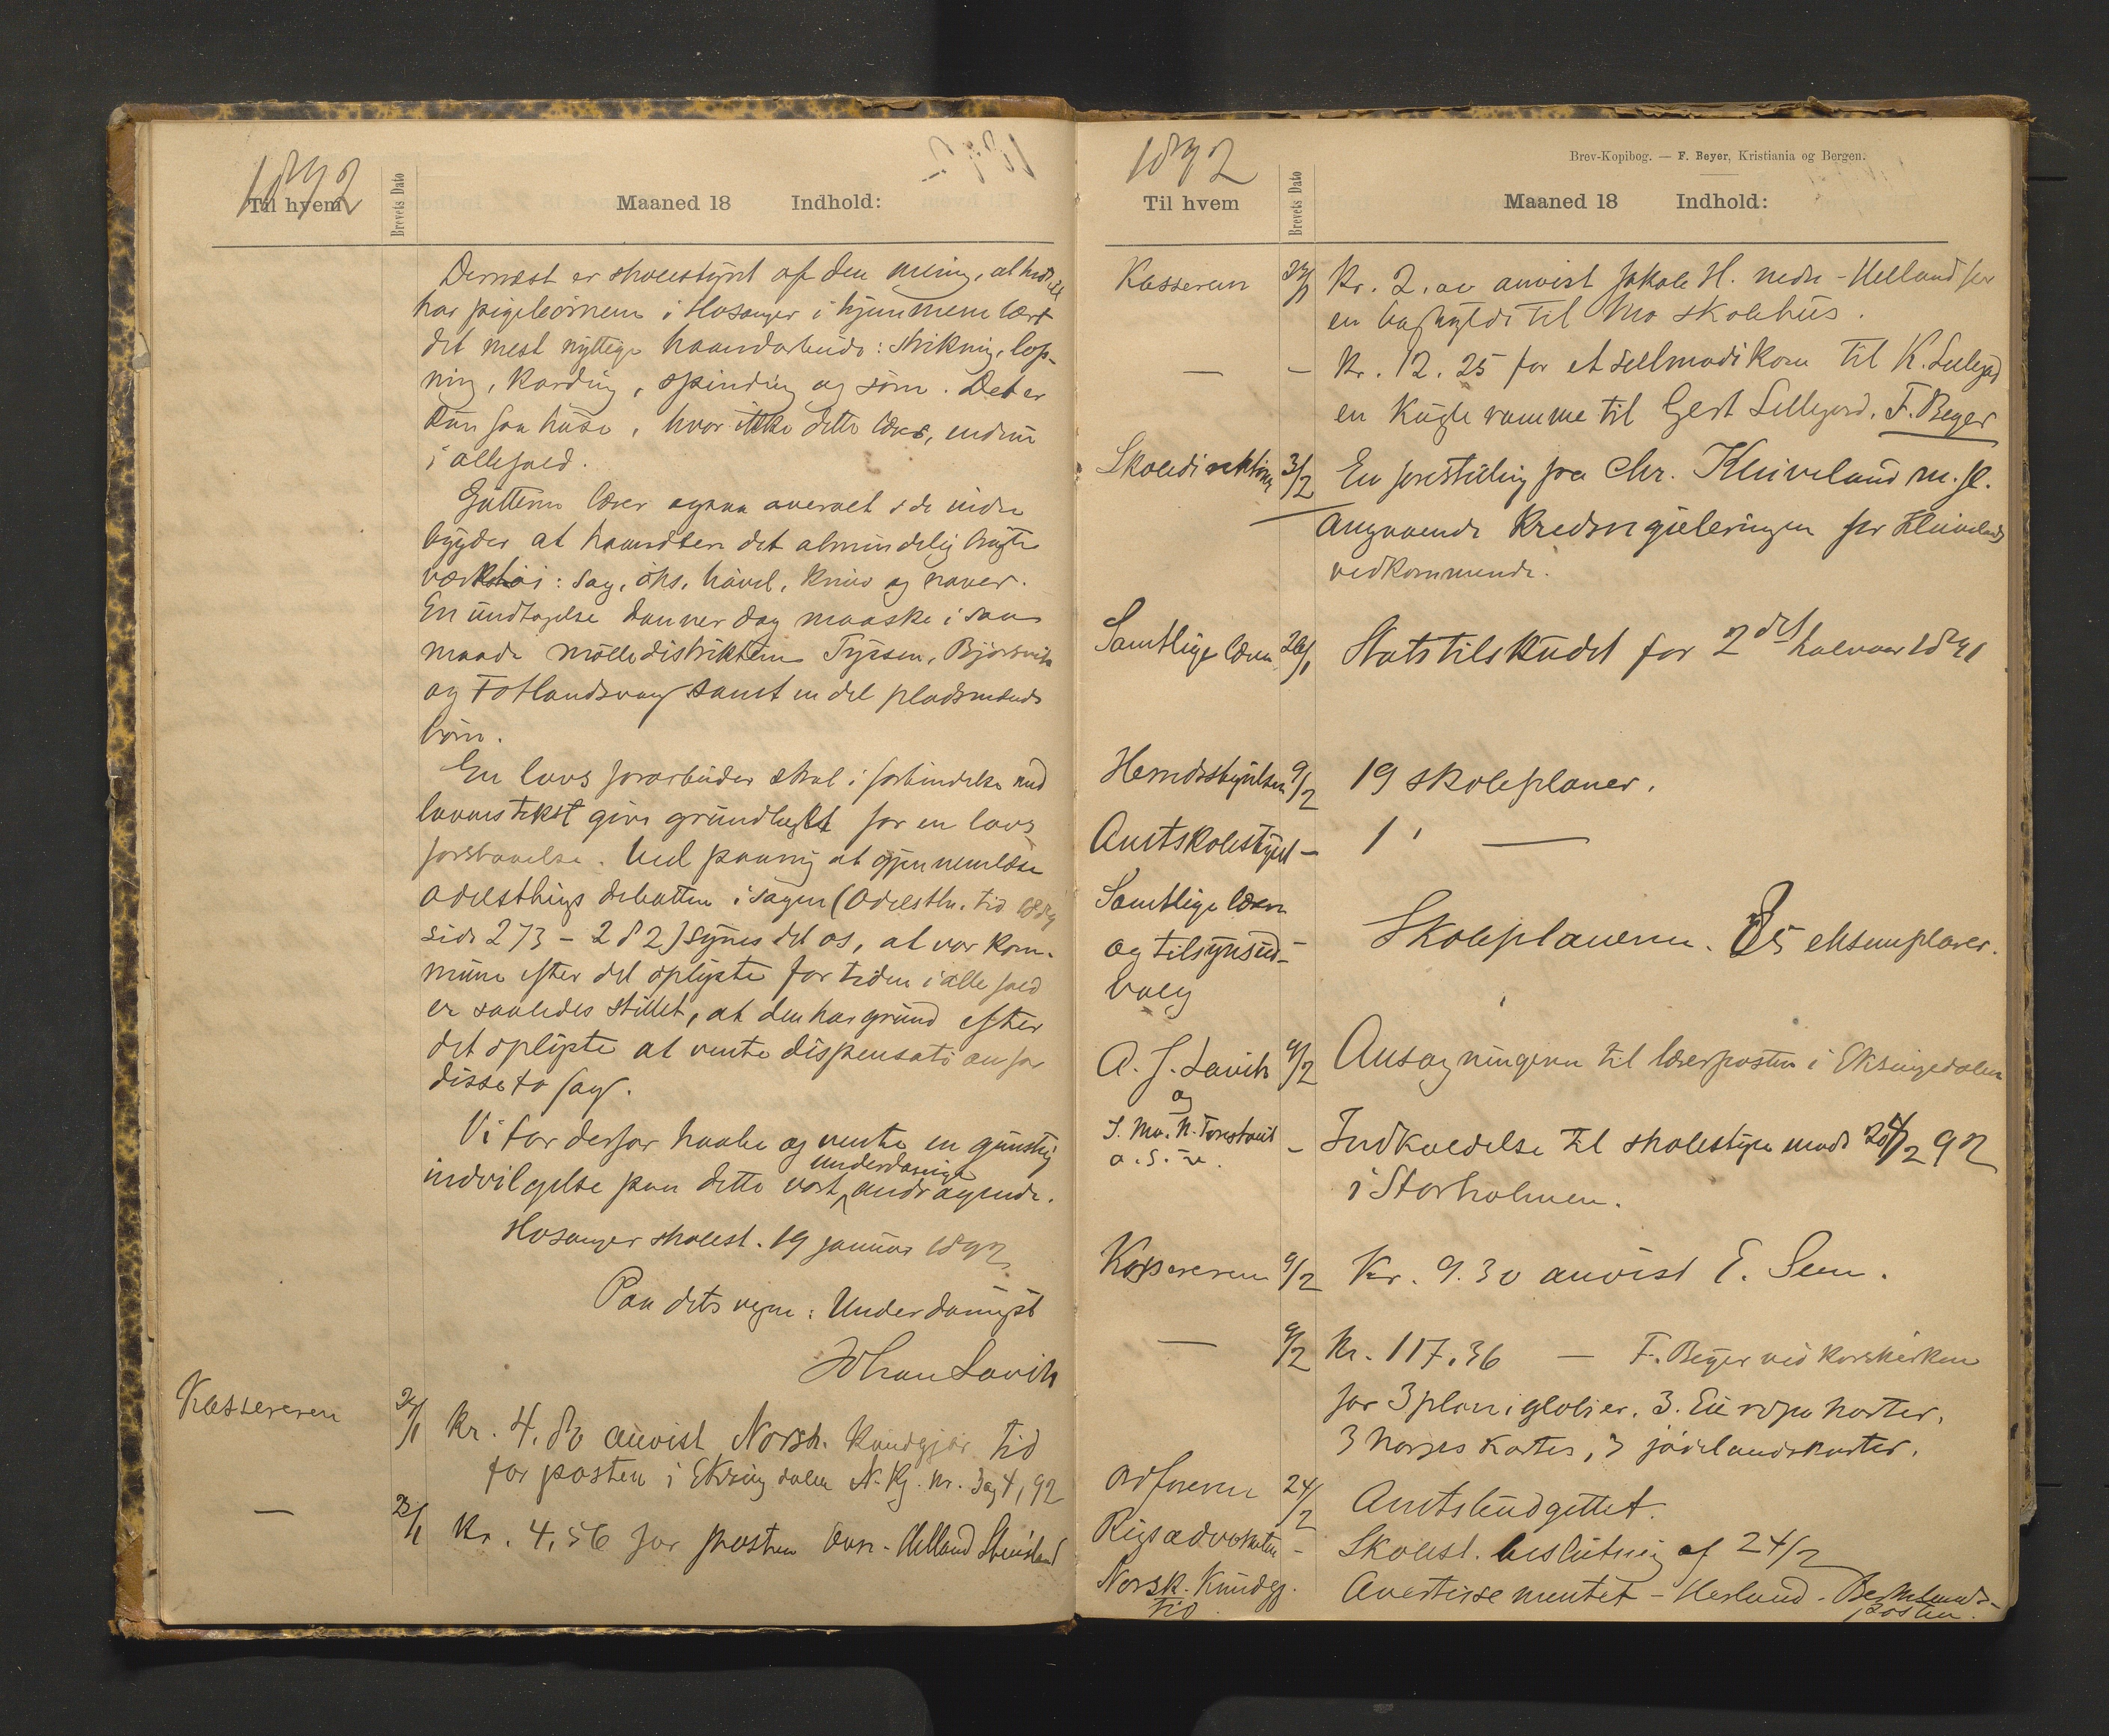 1892
Til hvem
Brevets Dato
Maaned 18 Indhold:
Dernæst er skolestyret af den mening, at hidtil
har pigebörnene i Hosanger i hjemmene lært
det mest nyttige haandarbeide: strikning, lap-
ning, karding, spinding og söm. Det er
kun faa huse, hvor ikke dette læres, endnu
i alle fald.
Gutterne lærer ogsaa overalt i de indre
bygder at haandtere det almindelig brugte
verktöi: sag, öks, hövel, kniv og naver.
En undtagelse danner dog maaske i saa
maade mölledistrikterne Tyssen, Bjørsvik
og Fotlandsvaag samt en del pladsmænds
börn.
En lovs forarbeider skal i forbindelse med
lovens tekst give grundlaget for en lovs
forstaaelse. Ved paany at gjennemlæse
odelsthings debatten i sagen (Odelsth. tid 1889
side 273 - 282) synes det os, at vor kom-
mune efter det oplyste for tiden i alle fald
er saaledes stillet, at den har grund efter
det oplyste at vente dispensation for
disse to fag.
Vi tör derfor haabe og vente en gunstig
underdanige
indvilgelse paa dette vort andragende.
Hosanger skolest. 19 januar 1892
Paa dets vegne: Underdanigst
Johan Lavik
Kassereren 22/1 Kr. 4.80 anvist Norsk. Kundgjör. Tid
for posten i Eksingdalen N. Kj. nr. 3 og 4, 92
— Kr. 4,56 for posten Övr-Helland
1892
Brev-Kopibog. — F. Beyer, Kristiania og Bergen.
Til hvem
Brevets Dato
Maaned 18 Indhold:
Kasseren Kr. 2.00 anvist Jakob H. nedr-Helland for
en boghylde til Mo skolehus.
— – Kr. 12.25 for et til K.
en Kugleramme til Gert Lillegard. F. Beyer
Skoledirektören 3/2 En forestilling fra Chr. Kleiveland m. fl.
angaaende Kredsreguleringen for Kleivelands
vedkommende.
Samtlige lærere 26/1 Statstilskudet for 2det halvaar 1891
Herredsstyrelsen 9/2 19 skoleplaner.
Amtskolestyret – 1 —
Samtlige lærere
og tilsynsud- – Skoleplanerne. 85 eksemplarer.
valg
A. J. Lavik 9/2 Ansögningerne til lærerposten i Eksingedalen
og
S. Mo. N. – Indkaldelse til skolestyremöde 24/2 92
o. s. v.
i Storholmen.
Kassereren 9/2 Kr. 9.30 anvist E. Sem.
— 9/2 Kr. 117.36 — F. Beyer ved Korskirken
for 3 planiglober, 3 Europa karter,
3 Norges karter, 3 jödelandskarter.
Ordföreren 24/2 Amtsbudgettet.
Rigsadvokaten – Skolest. beslutning af 24/2
Norsk. Kundgj. Avertissementet - Herland-
Tid posten.